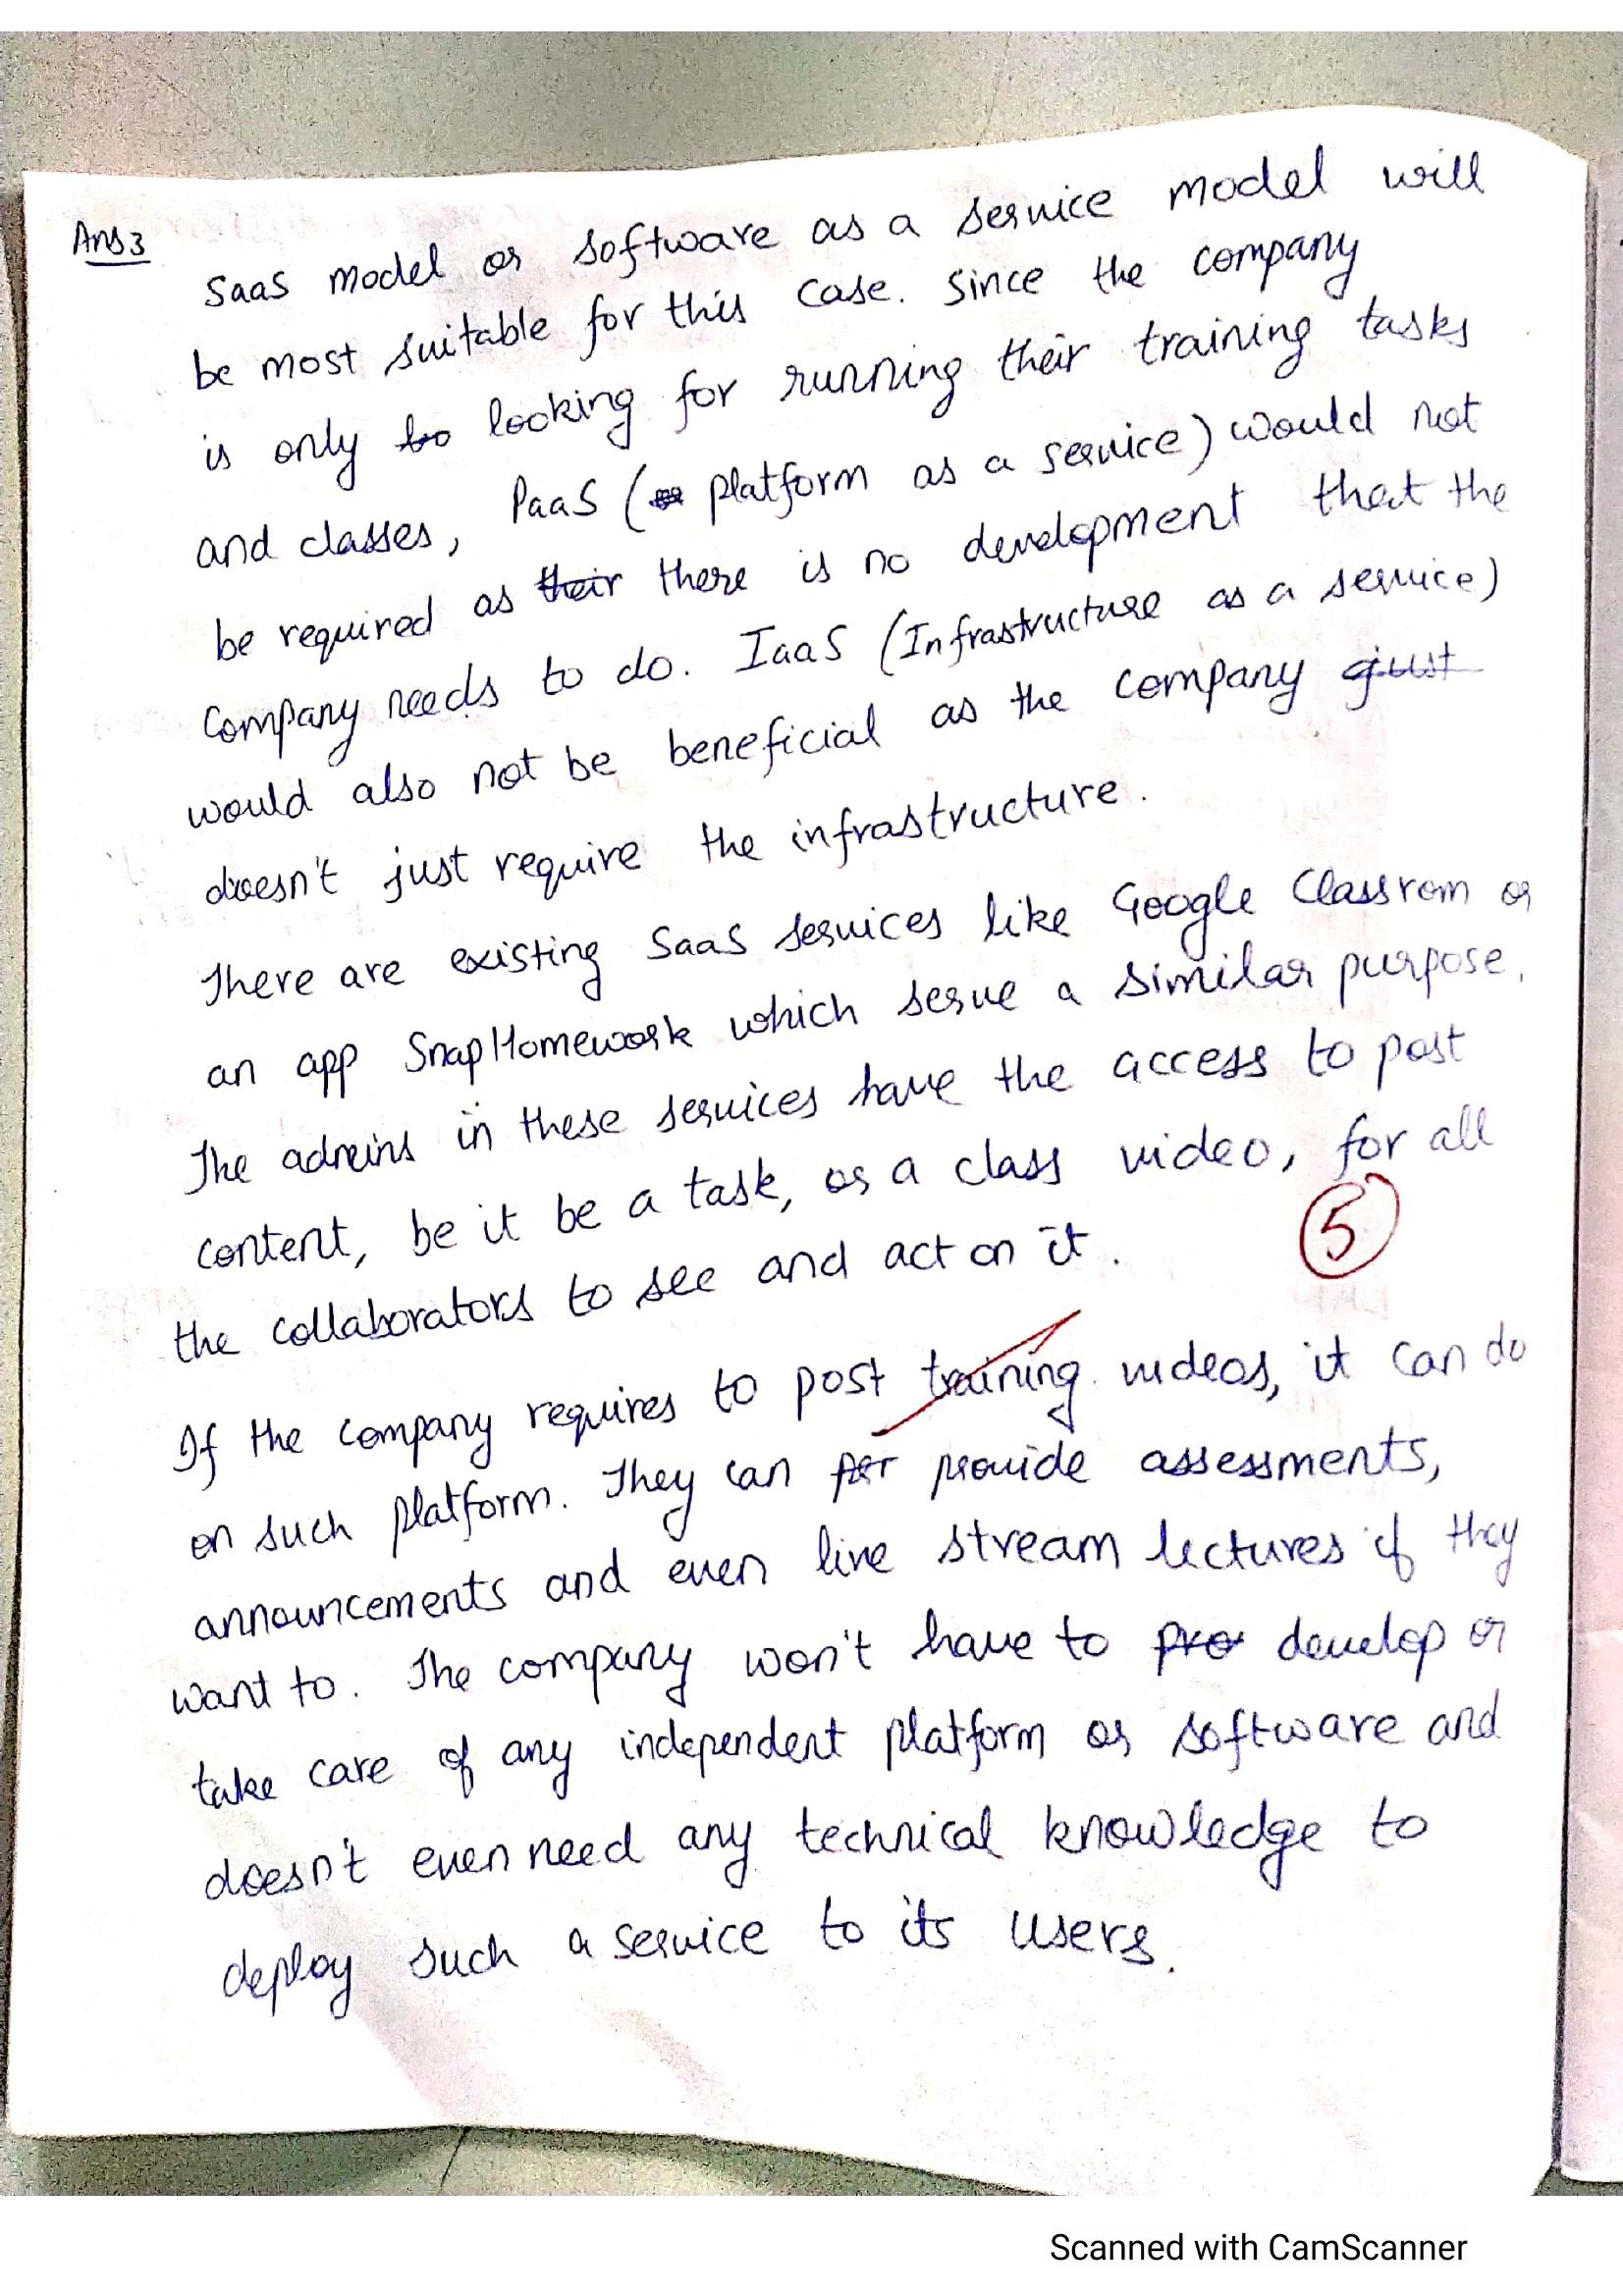 Ans 3
SaaS model or software as a service model will
be most suitable for this case. Since the company
is only to looking for running their training tasks
and classes, PaaS ( platform as a service) would not
be required as their there is no development that the
company needs to do. IaaS (Infrastructure as a service)
would also not be beneficial as the company just
doesn't just require the infrastructure.
There are existing SaaS services like Google Classrom or
an app SnapHomework which serve a similar purpose.
The admins in these services have the access to post
content, be it be a task, or a class video, for all
the collaborators to see and act on it.
5
If the company requires to post training videos, it can do
on such platform. They can provide assessments,
announcements and even live stream lectures if they
want to. The company won't have to pro develop or
take care of any independent platform or software and
doesn't even need any technical knowledge to
deploy such a service to its users.
Scanned with CamScanner